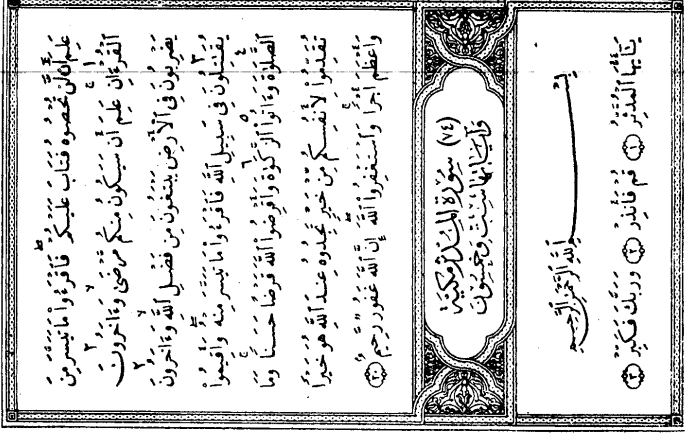 عَلِمَ أَن لَّن تُحْصُوهُ فَتَابَ عَلَيْكُمْ ۖ فَاقْرَءُوا مَا تَيَسَّرَ مِنَ
الْقُرْءَانِ ۚ عَلِمَ أَن سَيَكُونُ مِنكُم مَّرْضَىٰ ۙ وَءَاخَرُونَ
يَضْرِبُونَ فِي الْأَرْضِ يَبْتَغُونَ مِن فَضْلِ اللَّهِ ۙ وَءَاخَرُونَ
يُقَٰتِلُونَ فِي سَبِيلِ اللَّهِ ۖ فَاقْرَءُوا مَا تَيَسَّرَ مِنْهُ ۚ وَأَقِيمُوا
الصَّلَوٰةَ وَءَاتُوا الزَّكَوٰةَ وَأَقْرِضُوا اللَّهَ قَرْضًا حَسَنًا ۚ وَمَا
تُقَدِّمُوا لِأَنفُسِكُم مِّنْ خَيْرٍ تَجِدُوهُ عِندَ اللَّهِ هُوَ خَيْرًا
وَأَعْظَمَ أَجْرًا ۚ وَاسْتَغْفِرُوا اللَّهَ ۖ إِنَّ اللَّهَ غَفُورٌ رَّحِيمٌ ﴿٢٠﴾
(٧٤) سُورَةُ الْمُدَّثِّرِ مَكِّيَّة
وَآيَاتُهَا سِتٌّ وَخَمْسُونَ
بِسْمِ اللَّهِ الرَّحْمَٰنِ الرَّحِيمِ
يَٰأَيُّهَا الْمُدَّثِّرُ ﴿١﴾ قُمْ فَأَنذِرْ ﴿٢﴾ وَرَبَّكَ فَكَبِّرْ ﴿٣﴾